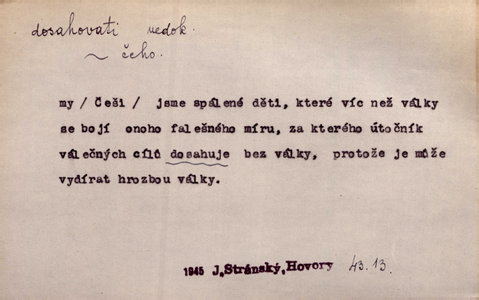 dosahovati nedok.
~ čeho.
my / Češi / jsme spálené děti, které víc než války
se bojí onoho falešného míru, za kterého útočník
válečných cílů dosahuje bez války, protože je může
vydírat hrozbou války.
1945 J. Stránský, Hovory 43.13.